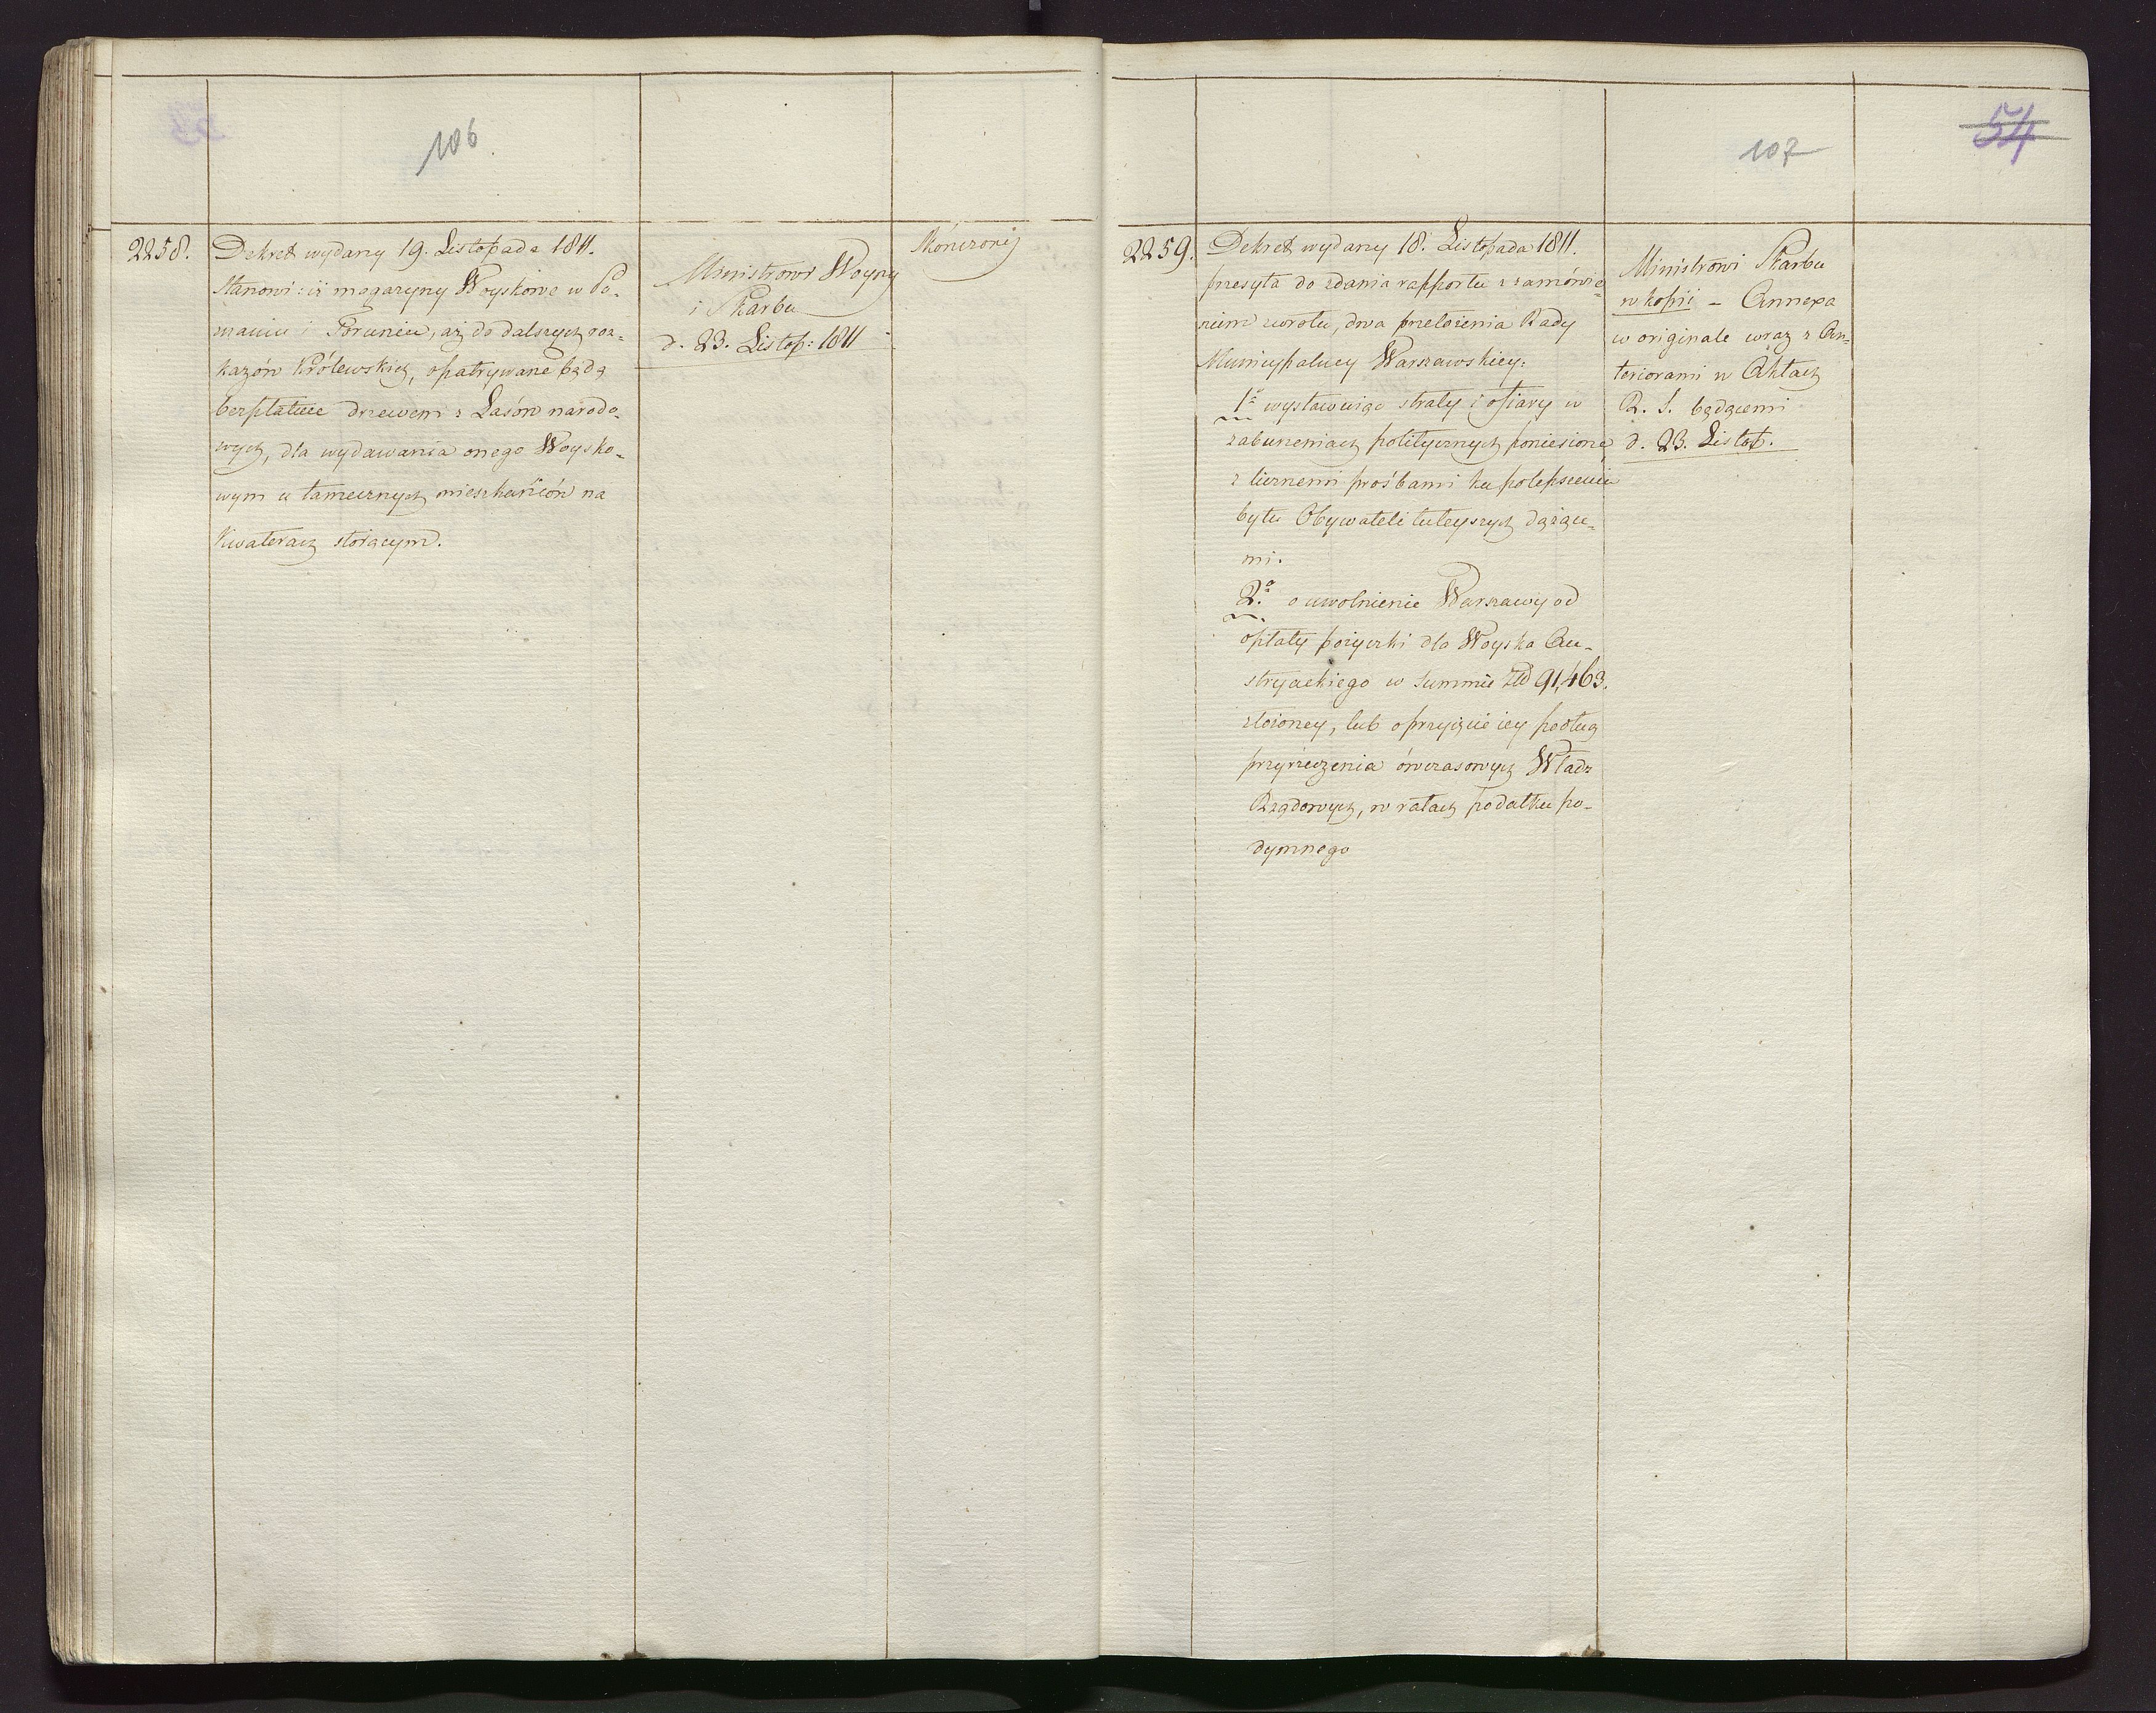 106.
2258.
Dekret wydany 19. Listopada 1811.
Stanowi: iż magazyny Woyskowe w Po-
znaniu i Toruniu, aż do dalszych roz-
kazów Królewskich, opatrywane będą
bezpłatnie drzewem z Lasów narodo-
wych, dla wydawania onego Woysko-
wym u tamecznych mieszkańców na
Kwaterach stoiącym.
Ministrowi Woyny
i Skarbu
d. 23. Listop: 1811
Skończony
107
54
2259.
Dekret wydany 18. Listopada 1811.
przesyła do zdania rapportu z zamówie-
niem zwrotu, dwa przełożenia Rady
Municypalney Warszawskiey:
1º wystawuiąc straty i ofiary w
zaburzeniach politycznych poniesione,
z licznemi prośbami ku polepszeniu
bytu Obywateli tuteyszych dążące-
mi.
2º o uwolnienie Warszawy od
opłaty pożyczki dla Woyska Au-
stryackiego w Summie Złł 91,463.
złożoney, lub o przyięcie iey podług
przyrzeczenia ówczasowych Władz
Rządowych, w ratach podatku po-
dymnego
Ministrowi Skarbu
w kopii - Annexa
w originale wraz z An-
teriorami w Aktach
R. S. będącemi
d. 23. Listop.